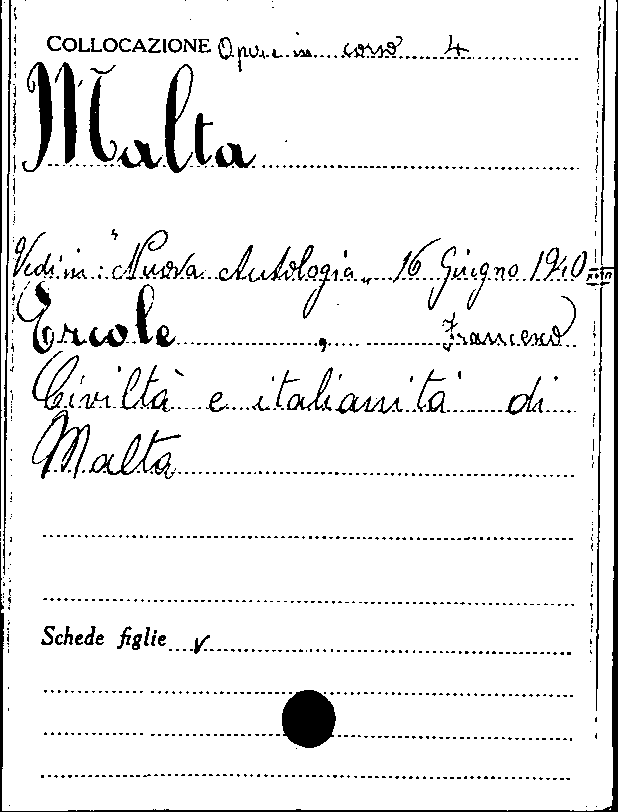 COLLOCAZIONE Opere in corso 4
Malta
Vedi in: "Nuova Antologia„ 16 Giugno 1940
Ercole, Francesco
Civiltà e italianità di
Malta
Schede figlie v